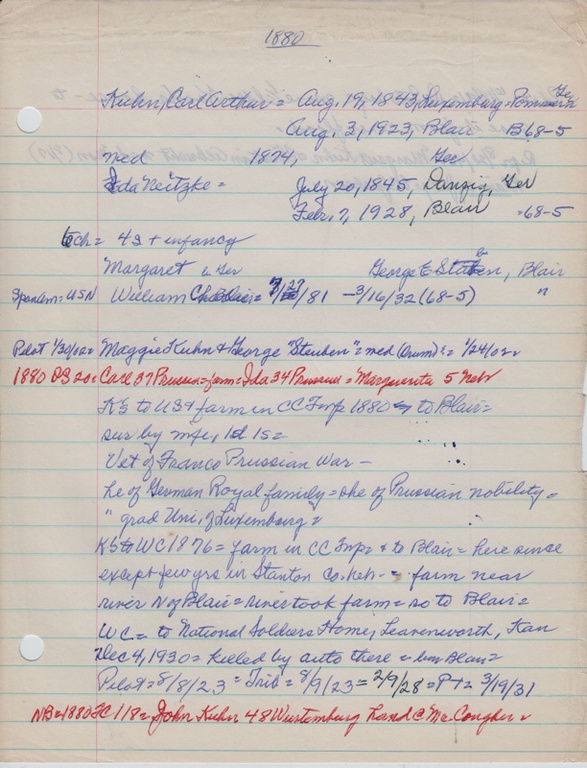 1880
Kuhn, Carl Arthur = Aug, 19, 1843, Luxemburg = Ger
Aug, 3, 1923, Blair B68-5
med 1874, Ger
Ida Neitzke = July 20, 1845, Danzig, Ger
Feb, 7, 1928, Blair -68-5
6ch = 4s + infancy
Margaret b Ger George E Steuben, Blair
Spanam = USN William Charles = /81 -3/16/32 (68-5) "
Pilot 1/30/02 = Maggie Kuhn & George "Steuben" = med (Orum) = 1/24/02 =
1880 DS 20 = Carl 37 Prussia = farm = Ida 34 Prussia = Marguerita 5 Neb
to US & farm in CC Twp 1880 to Blair =
sur by wife, 1d 1s =
Vet of Franco Prussian War -
he of German Royal family = she of Prussian nobility =
" grad Uni, of Luxemburg =
to WC 1876 = farm in CC Twp = & to Blair = here since
except few yrs in Stanton Co. Neb - = farm near
river N of Blair = river took farm = so to Blair =
WC = to National Soldiers Home, Leavenworth, Kan
Dec 4, 1930 = killed by auto there = bur Blair =
Pilot = 8/8/23 = Trib = 8/9/23 = 2/9/28 = P + = 3/19/31
NB = 1880 118 = John Kuhn 48 Wurtemburg Land @